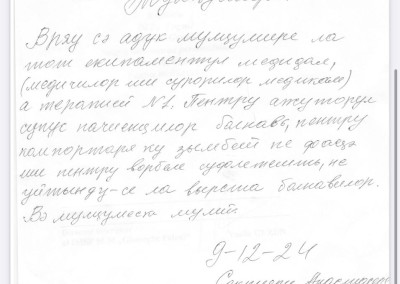 Вряу сэ адук мулцумире ла
тот екипаментул медидал,
(медичилор ши сурорилор медикале)
а терапией №1. Пентру ажуторул
супус пачиенцилор болнавь, пентру
компортаря ку зымбет пе фацэ
ши пентру ворбие суфлетешть, не
уйтынду-се ла вырста болнавилор.
Вэ мулцумеск мулт
9-12-24